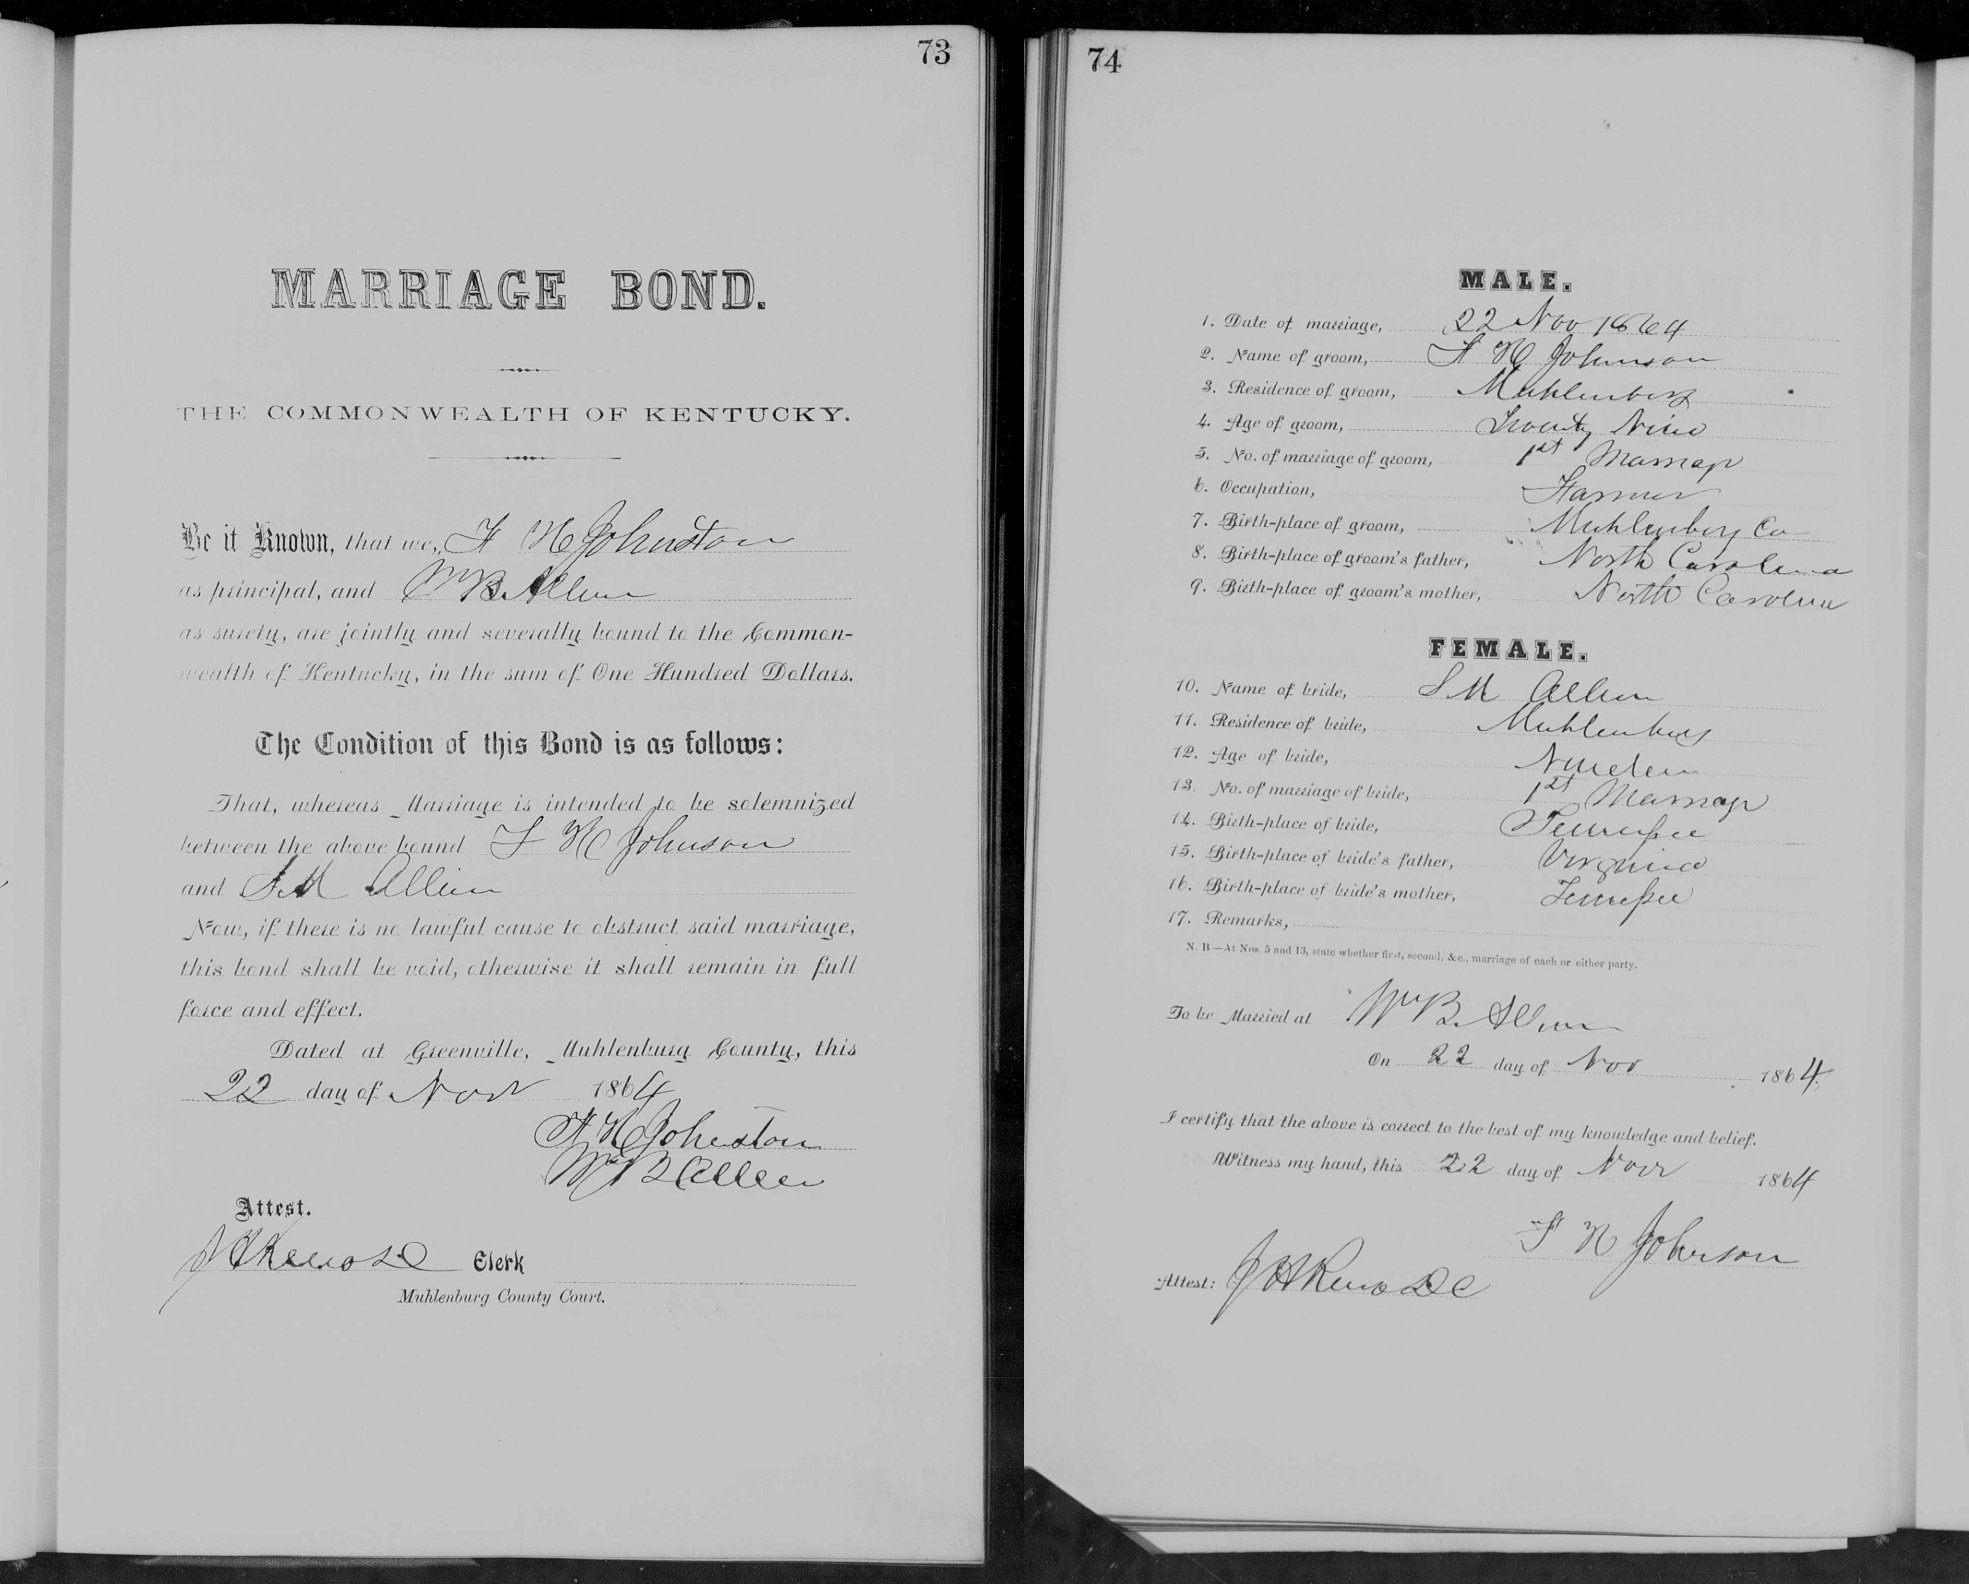 73
MARRIAGE BOND.
THE COMMONWEALTH OF KENTUCKY.
Be it Known, that we, F H Johnston
as principal, and Wm B. Allen
as surety, are jointly and severally bound to the Common-
wealth of Kentucky, in the sum of One Hundred Dollars.
The Condition of this Bond is as follows:
That, whereas Marriage is intended to be solemnized
between the above bound F H Johnson
and S. M Allen
Now, if there is no lawful cause to obstruct said marriage,
this bond shall be void, otherwise it shall remain in full
force and effect.
Dated at Greenville, Muhlenburg County, this
22 day of Novr 1864
F H Johnston
Wm B Allen
Attest.
J H Reno D C Clerk
Muhlenburg County Court.
74
MALE.
1. Date of marriage, 22 Nov 1864
2. Name of groom, F H Johnson
3. Residence of groom, Muhlenberg
4. Age of groom, Twenty Nine
5. No. of marriage of groom, 1st Marriage
6. Occupation, Farmer
7. Birth-place of groom, Muhlenberg Co
8. Birth-place of groom's father, North Carolina
9. Birth-place of groom's mother, North Carolina
FEMALE.
10. Name of bride, S. M Allen
11. Residence of bride, Muhlenberg
12. Age of bride, Nineteen
13. No. of marriage of bride, 1st Marriage
14. Birth-place of bride, Tennessee
15. Birth-place of bride's father, Virginia
16. Birth-place of bride's mother, Tennessee
17. Remarks,
N. B—At Nos. 5 and 13, state whether first, second, &c., marriage of each or either party.
To be Married at Wm B. Allen
On 22 day of Nov 1864.
I certify that the above is correct to the best of my knowledge and belief.
Witness my hand, this 22 day of Novr 1864
F H Johnson
Attest: J H Reno D C